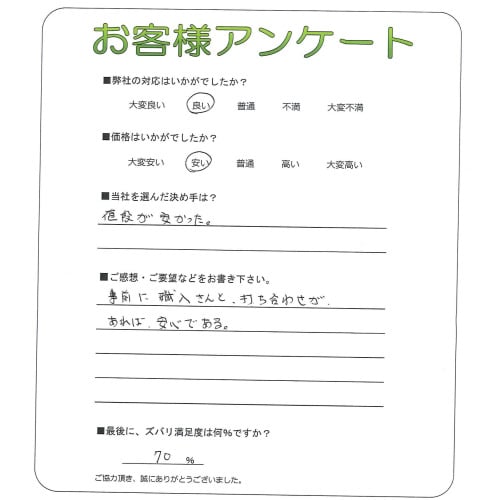 お客様アンケート
■弊社の対応はいかがでしたか？
大変良い 良い 普通 不満 大変不満
■価格はいかがでしたか？
大変安い 安い 普通 高い 大変高い
■当社を選んだ決め手は？
値段が安かった。
■ご感想・ご要望などをお書き下さい。
事前に職人さんと、打ち合わせが、
あれば、安心である。
■最後に、ズバリ満足度は何%ですか？
70 %
ご協力頂き、誠にありがとうございました。